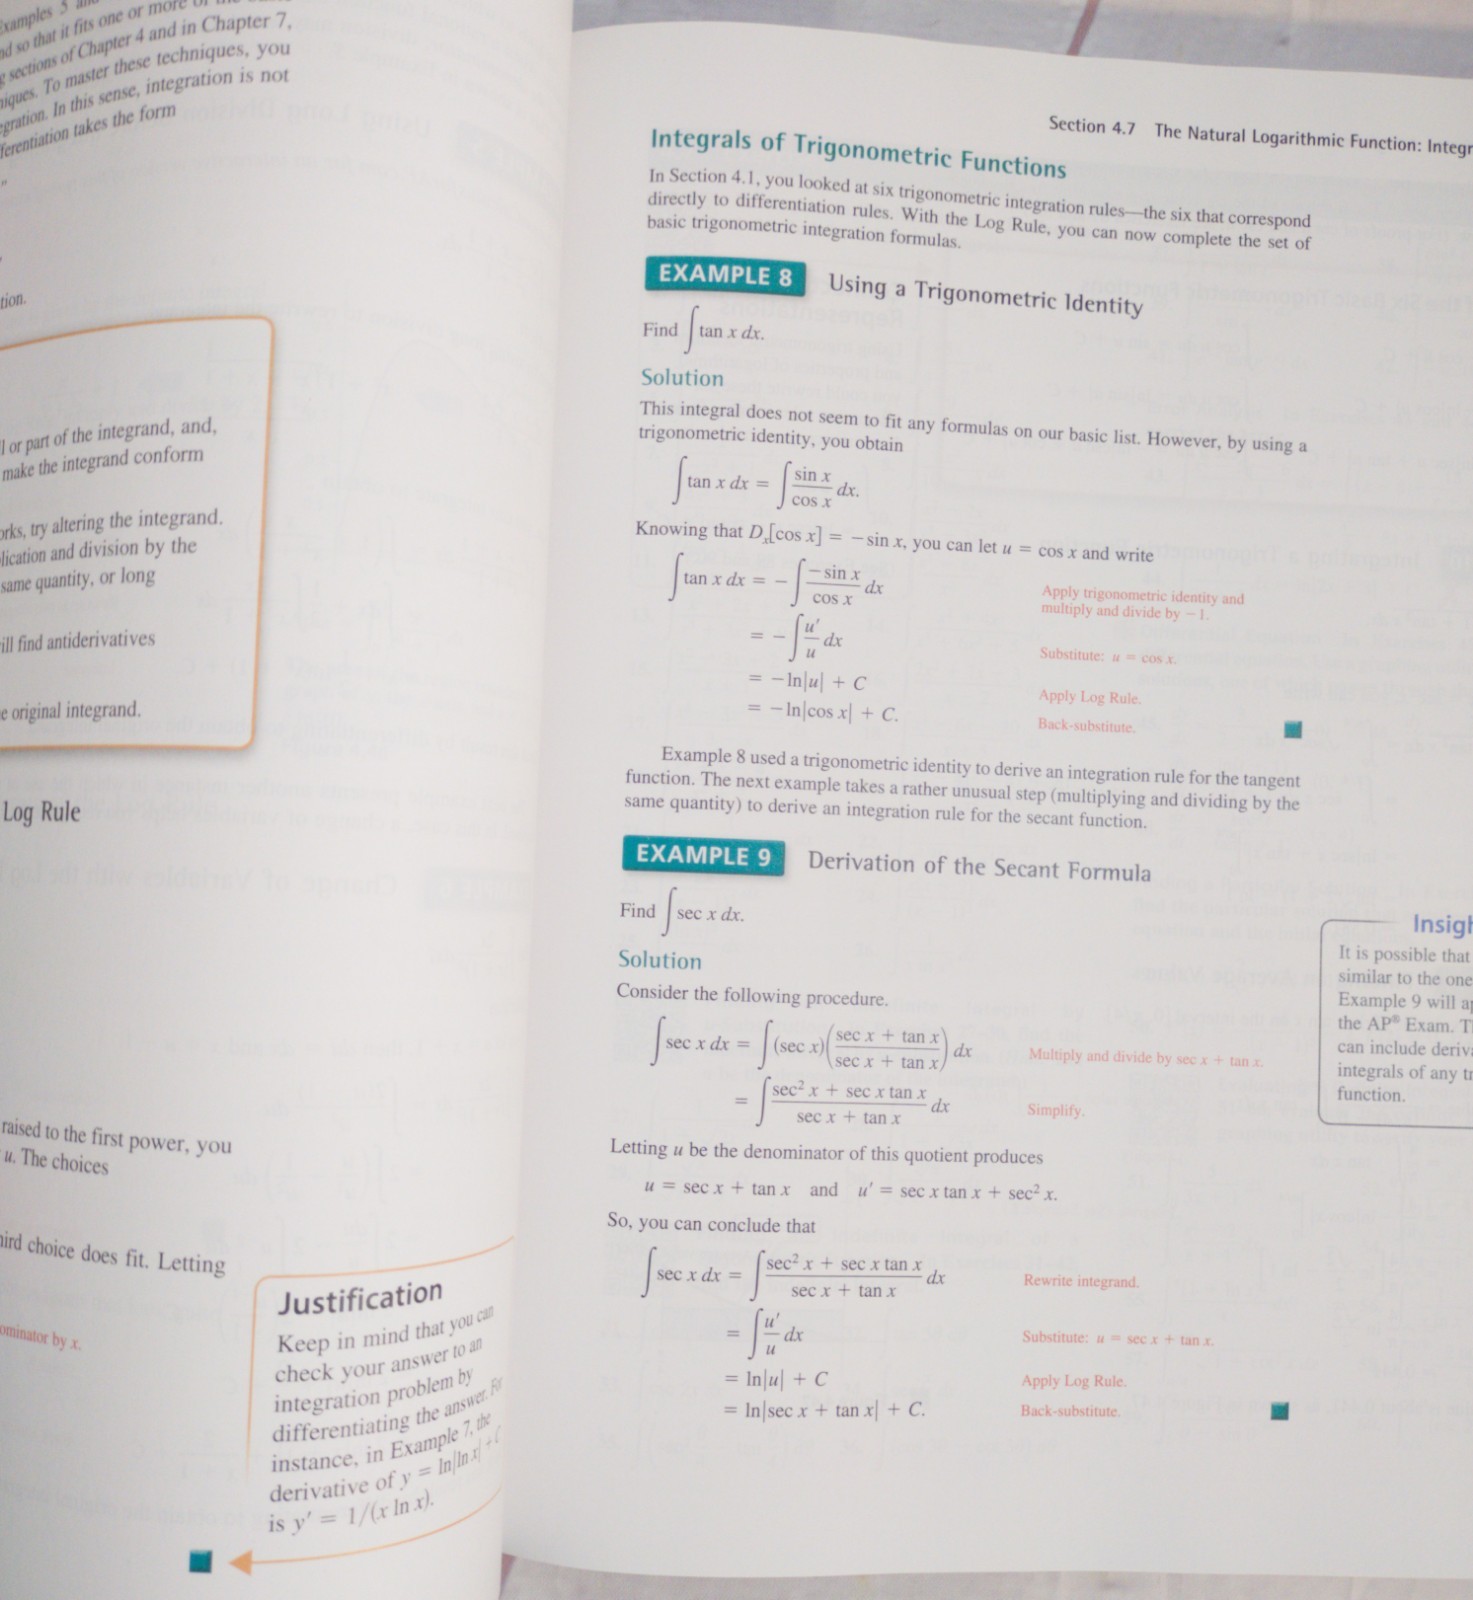 so that it fits one or more
sections of Chapter 4 and in Chapter 7,
To master these techniques, you
In this sense, integration is not
takes the form
or part of the integrand, and,
make the integrand conform
try altering the integrand.
and division by the
same quantity, or long
find antiderivatives
original integrand.
Log Rule
raised to the first power, you
u. The choices
choice does fit. Letting
by x.
Justification
Keep in mind that you can
check your answer to an
integration problem by
differentiating the answer. For
instance, in Example 7, the
derivative of y = ln|ln x| + C
is y′ = 1/(x ln x).
Section 4.7 The Natural Logarithmic Function:
Integrals of Trigonometric Functions
In Section 4.1, you looked at six trigonometric integration rules—the six that correspond
directly to differentiation rules. With the Log Rule, you can now complete the set of
basic trigonometric integration formulas.
EXAMPLE 8 Using a Trigonometric Identity
Find ∫ tan x dx.
Solution
This integral does not seem to fit any formulas on our basic list. However, by using a
trigonometric identity, you obtain
∫ tan x dx = ∫ (sin x)/(cos x) dx.
Knowing that Dₓ[cos x] = −sin x, you can let u = cos x and write
∫ tan x dx = −∫ (−sin x)/(cos x) dx Apply trigonometric identity and
multiply and divide by −1.
= −∫ u′/u dx Substitute: u = cos x.
= −ln|u| + C Apply Log Rule.
= −ln|cos x| + C. Back-substitute.
Example 8 used a trigonometric identity to derive an integration rule for the tangent
function. The next example takes a rather unusual step (multiplying and dividing by the
same quantity) to derive an integration rule for the secant function.
EXAMPLE 9 Derivation of the Secant Formula
Find ∫ sec x dx.
Solution
Consider the following procedure.
∫ sec x dx = ∫ (sec x)((sec x + tan x)/(sec x + tan x)) dx Multiply and divide by sec x + tan x.
= ∫ (sec² x + sec x tan x)/(sec x + tan x) dx Simplify.
Letting u be the denominator of this quotient produces
u = sec x + tan x and u′ = sec x tan x + sec² x.
So, you can conclude that
∫ sec x dx = ∫ (sec² x + sec x tan x)/(sec x + tan x) dx Rewrite integrand.
= ∫ u′/u dx Substitute: u = sec x + tan x.
= ln|u| + C Apply Log Rule.
= ln|sec x + tan x| + C. Back-substitute.
It is possible that
similar to the one
Example 9 will
the AP® Exam.
can include
integrals of any
function.